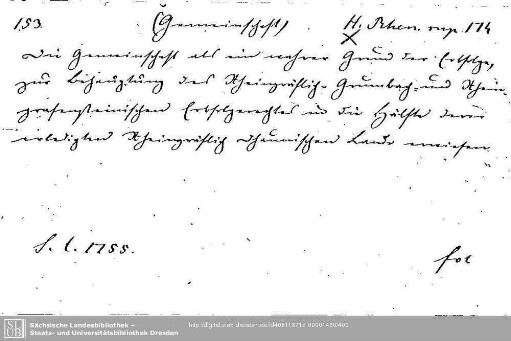 153. (Gemeinschaft) H. Rhen. sup. 174
Die Gemeinschaft als ein wahrer Grund der Erbfolge,
zur Behauptung des Rheingräflich-Grumbach- und Rhein-
grafensteinischen Erbfolgerechtes in die Hälfte derer
erledigten Rheingräflich Dhaunischen Lande erwiesen.
S. l. 1755. fol
Sächsische Landesbibliothek –
Staats- und Universitätsbibliothek Dresden